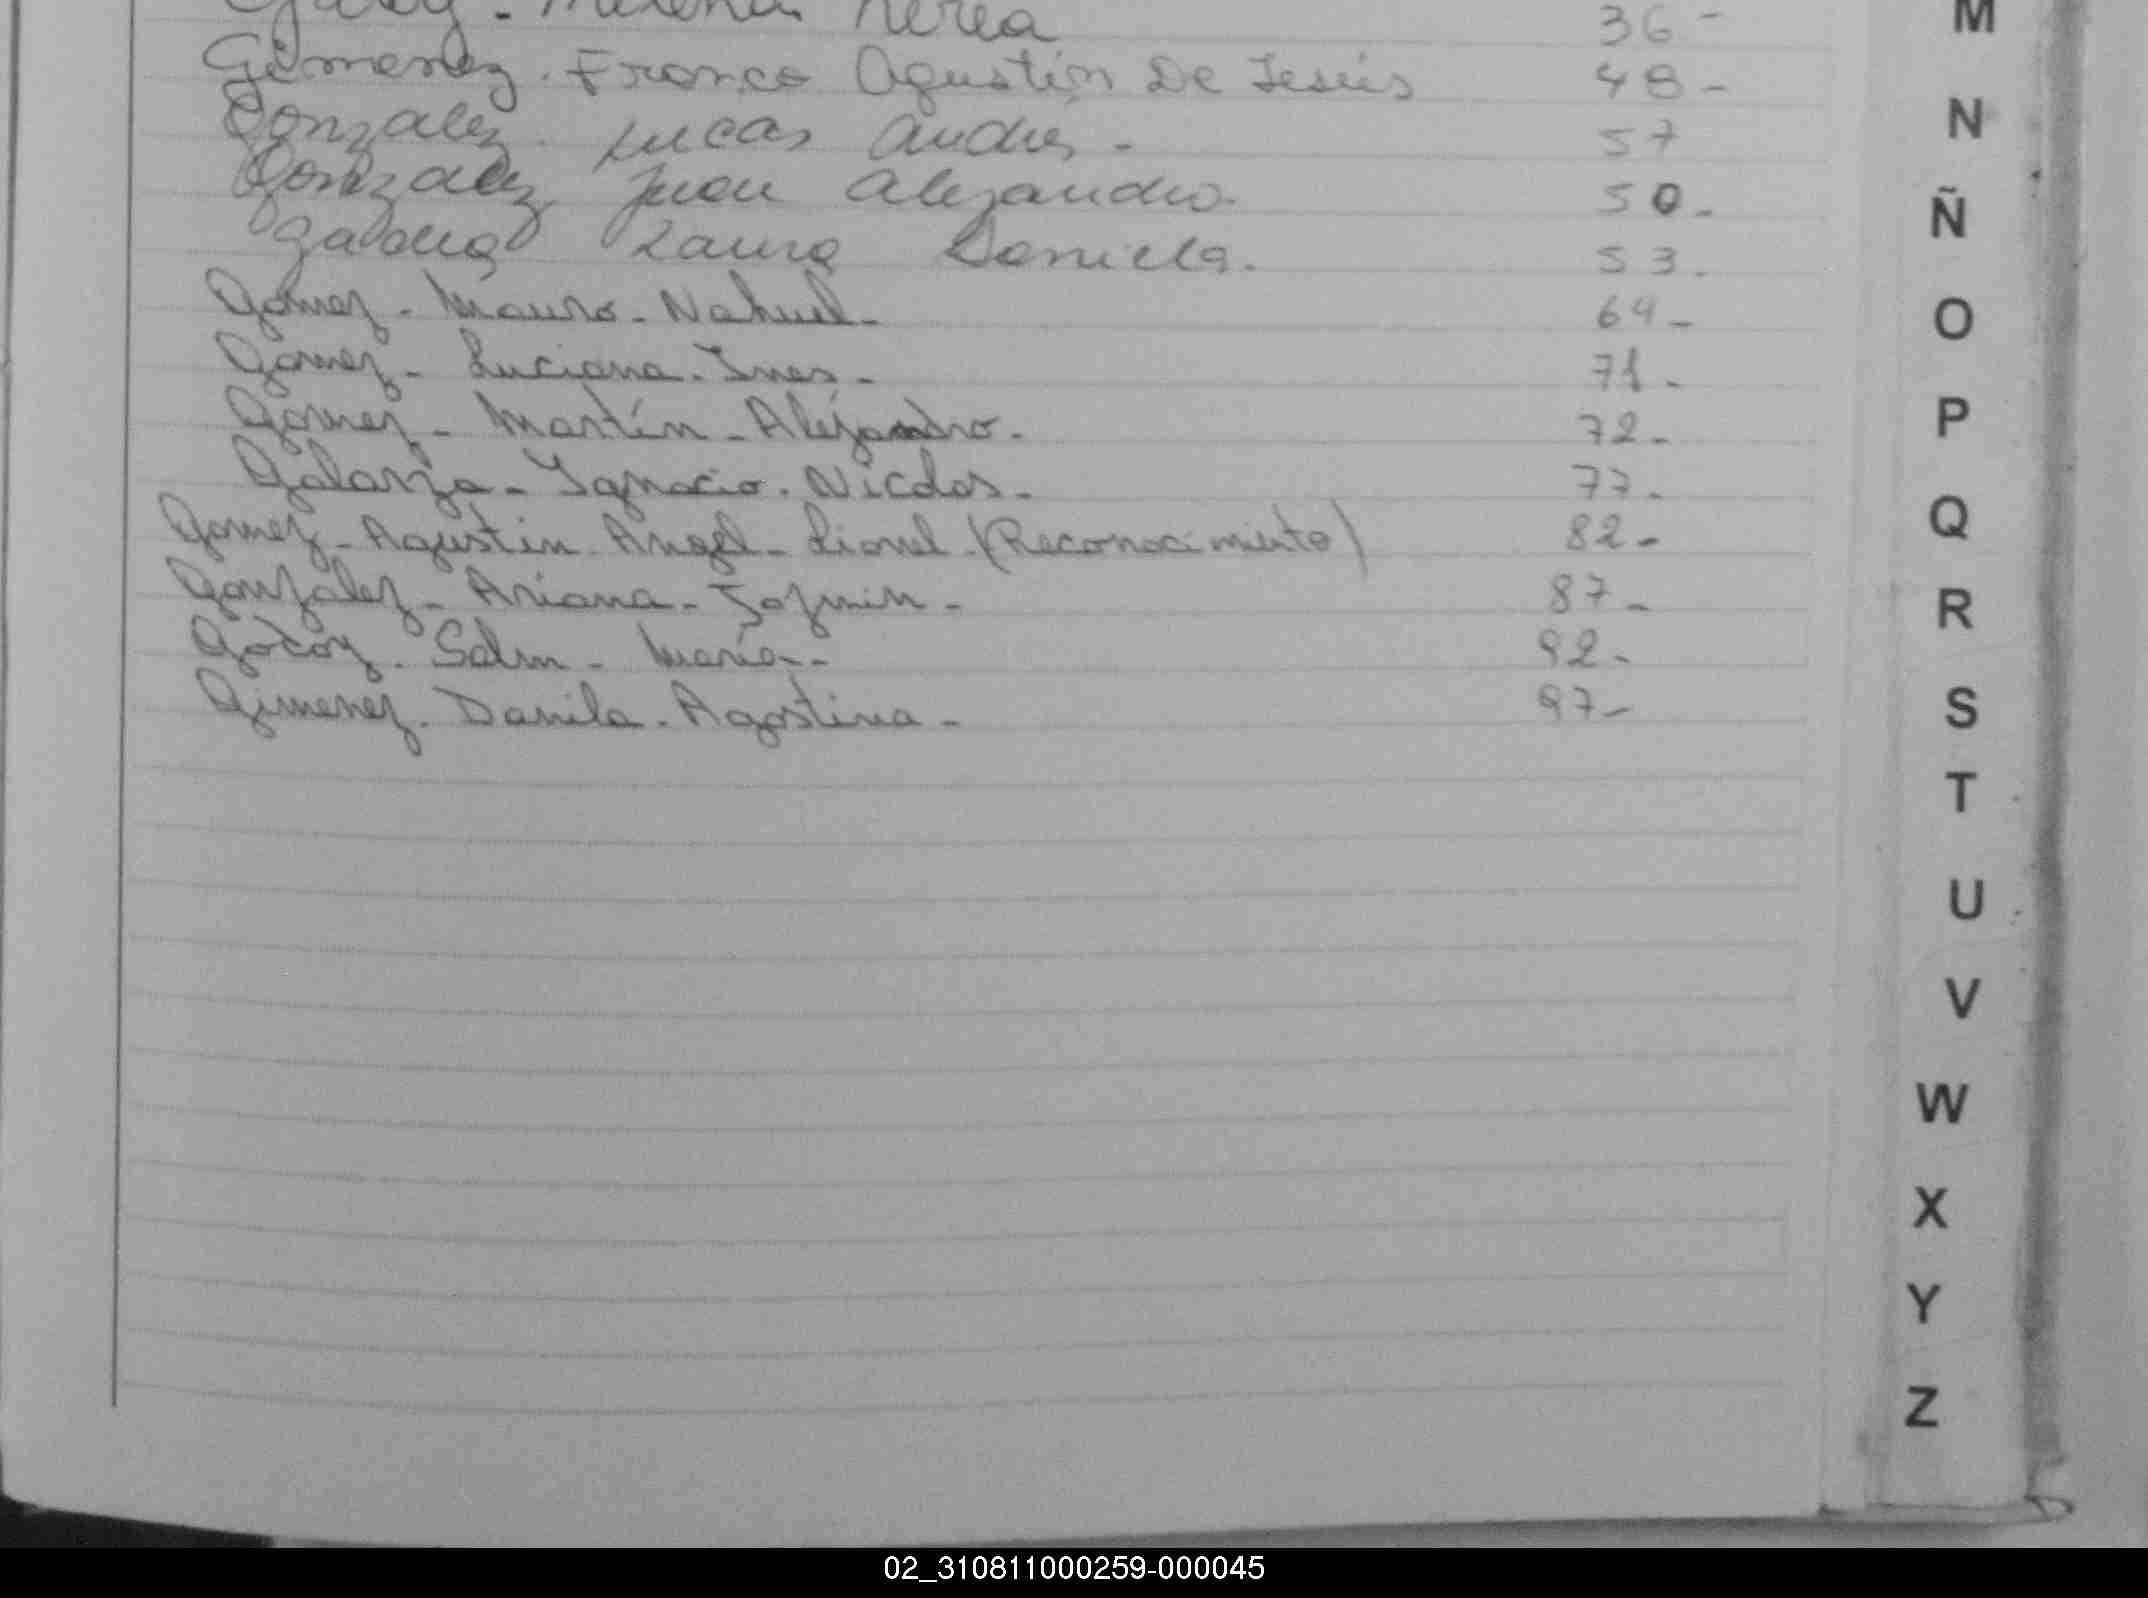 Milena Nerea 36-
M
Gimenez. Franco Agustín De Jesús 48-
N
Gonzalez. Lucas Andres - 57
Gonzalez Juan Alejandro. 50-
Ñ
Laura Daniela. 53.
Gomez - Mauro - Nahuel - 64-
O
Gomez - Luciana - Ines - 71-
Gomez - Martín - Alejandro. 72-
P
Galarza - Ignacio. Nicolas - 77.
Gomez - Agustin Angel - Lionel (Reconocimiento) 82-
Q
Gonzalez - Ariana - Jazmin - 87-
R
Godoy. - María - 92-
Gimenez. Danila. Agostina - 97-
S
T
U
V
W
X
Y
Z
02_310811000259-000045